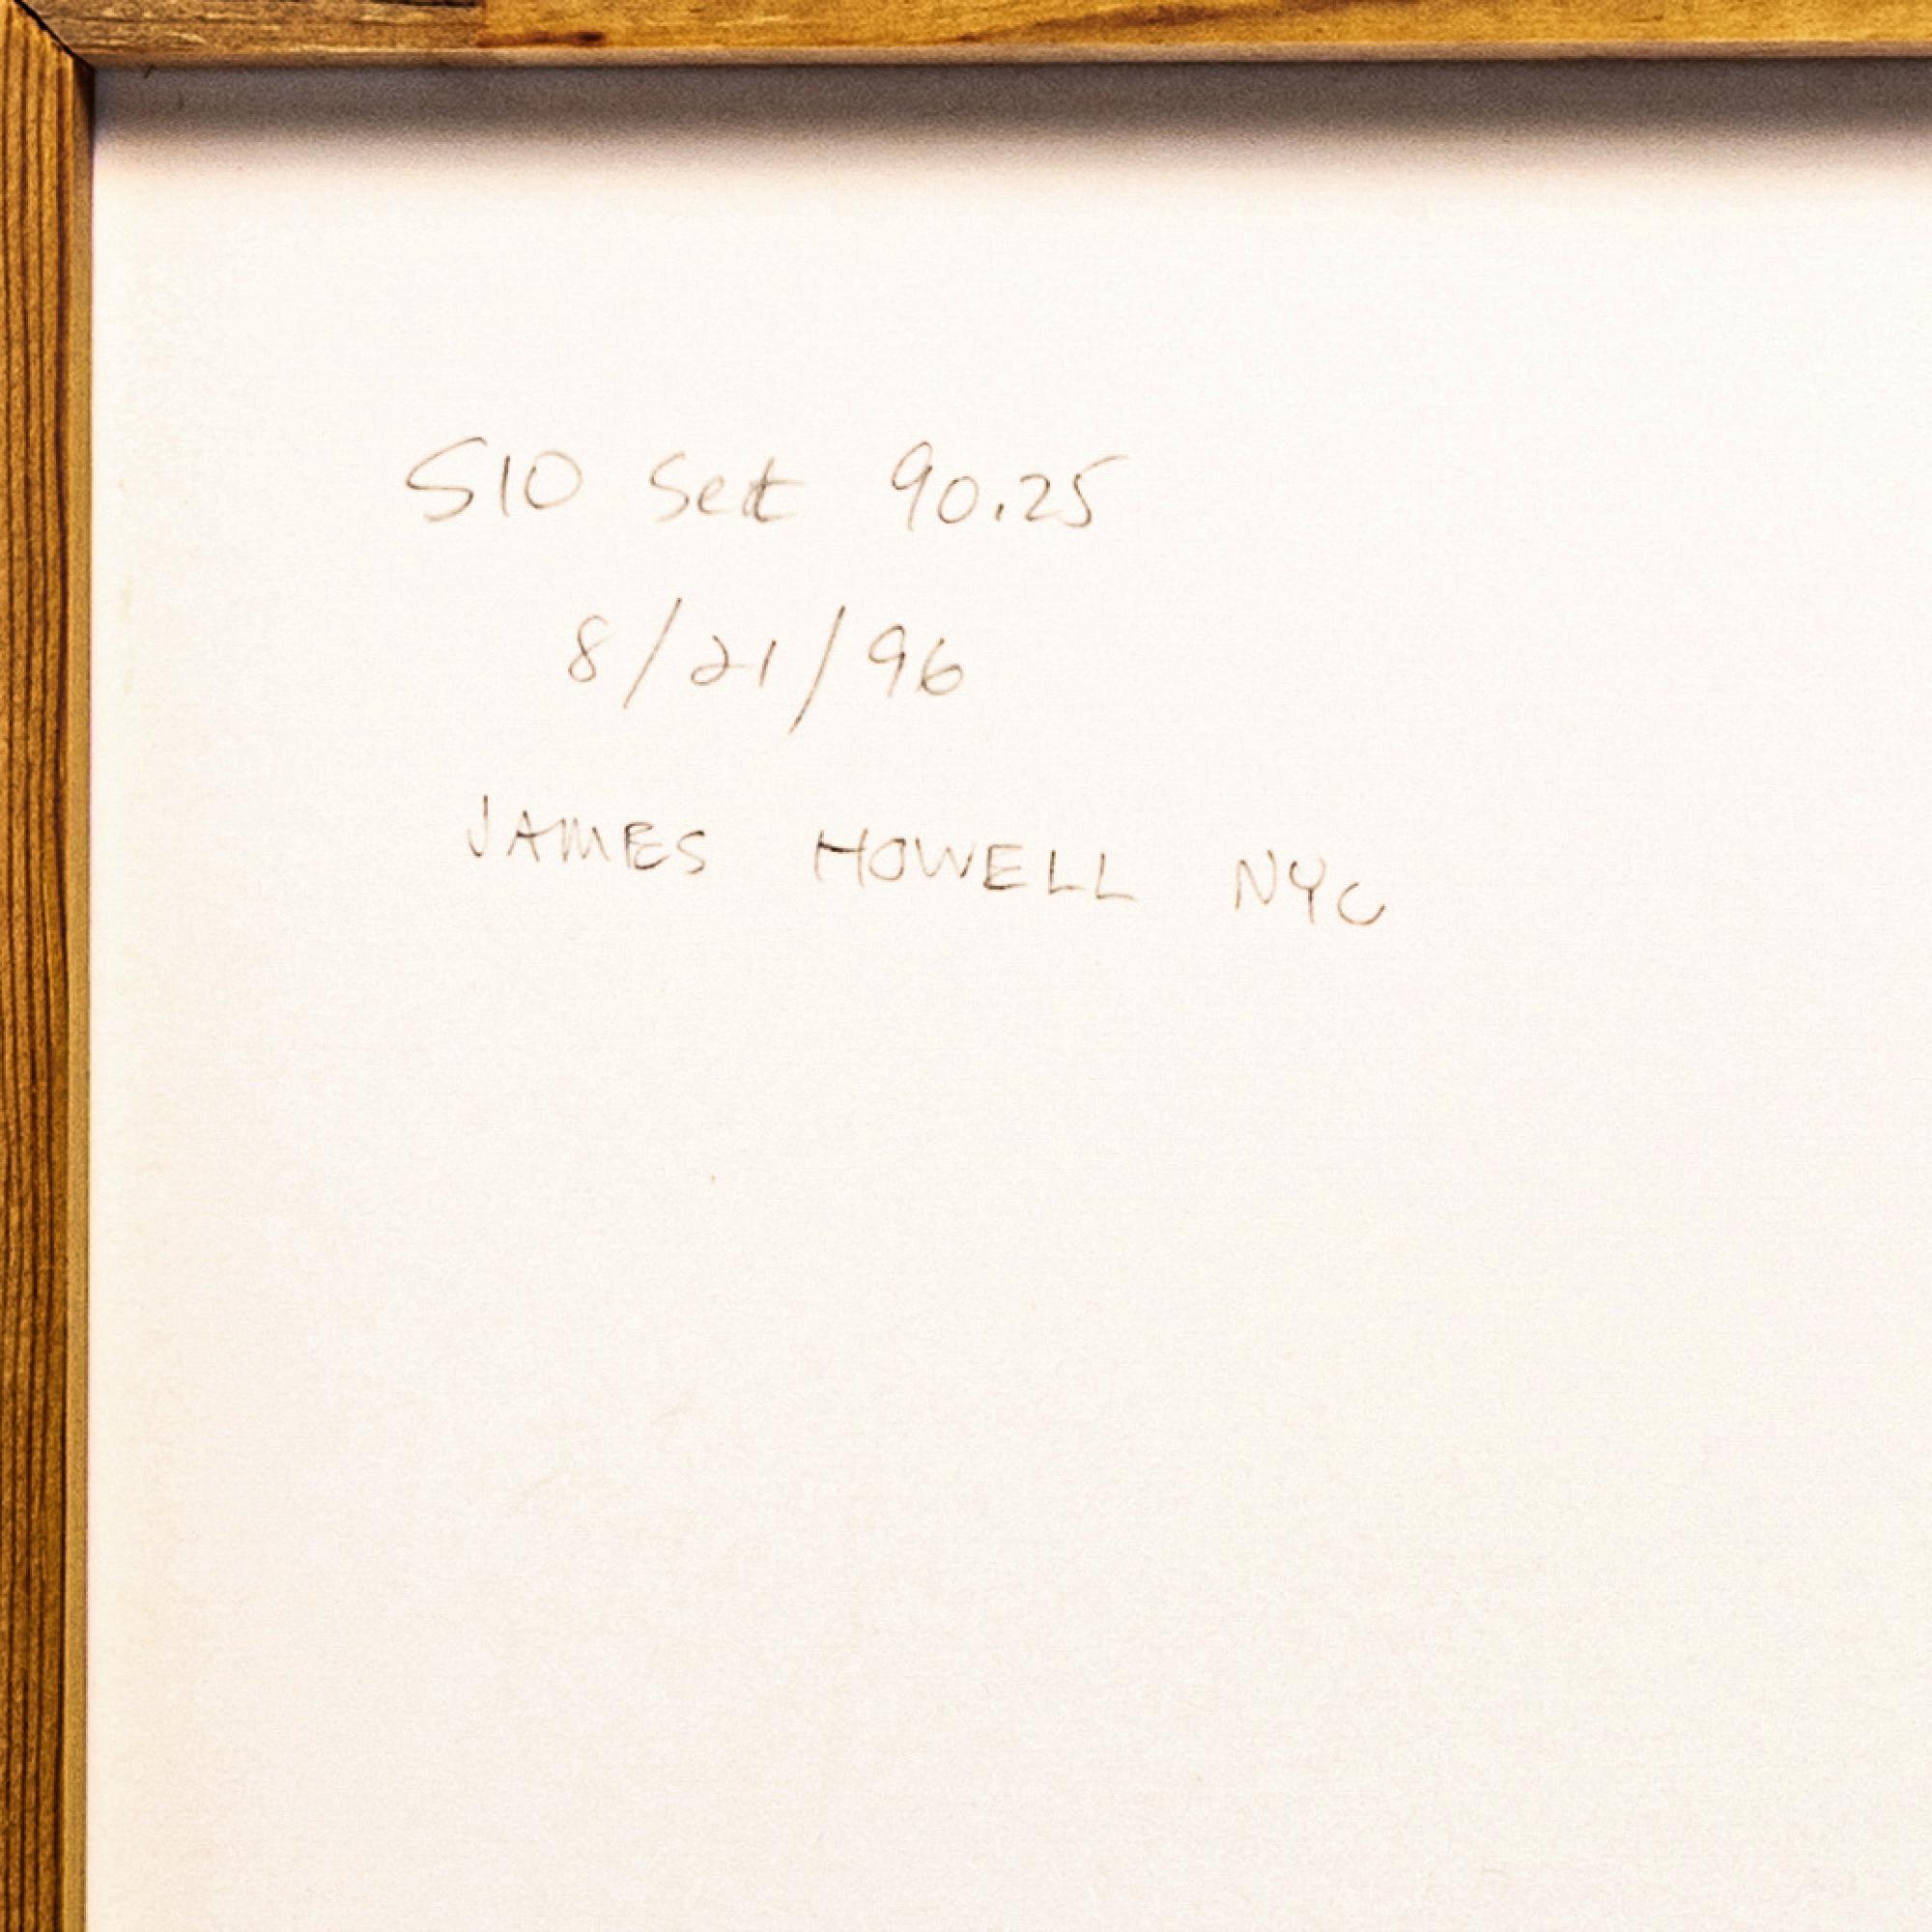 S10 Set 90.25
8/21/96
JAMES HOWELL NYC